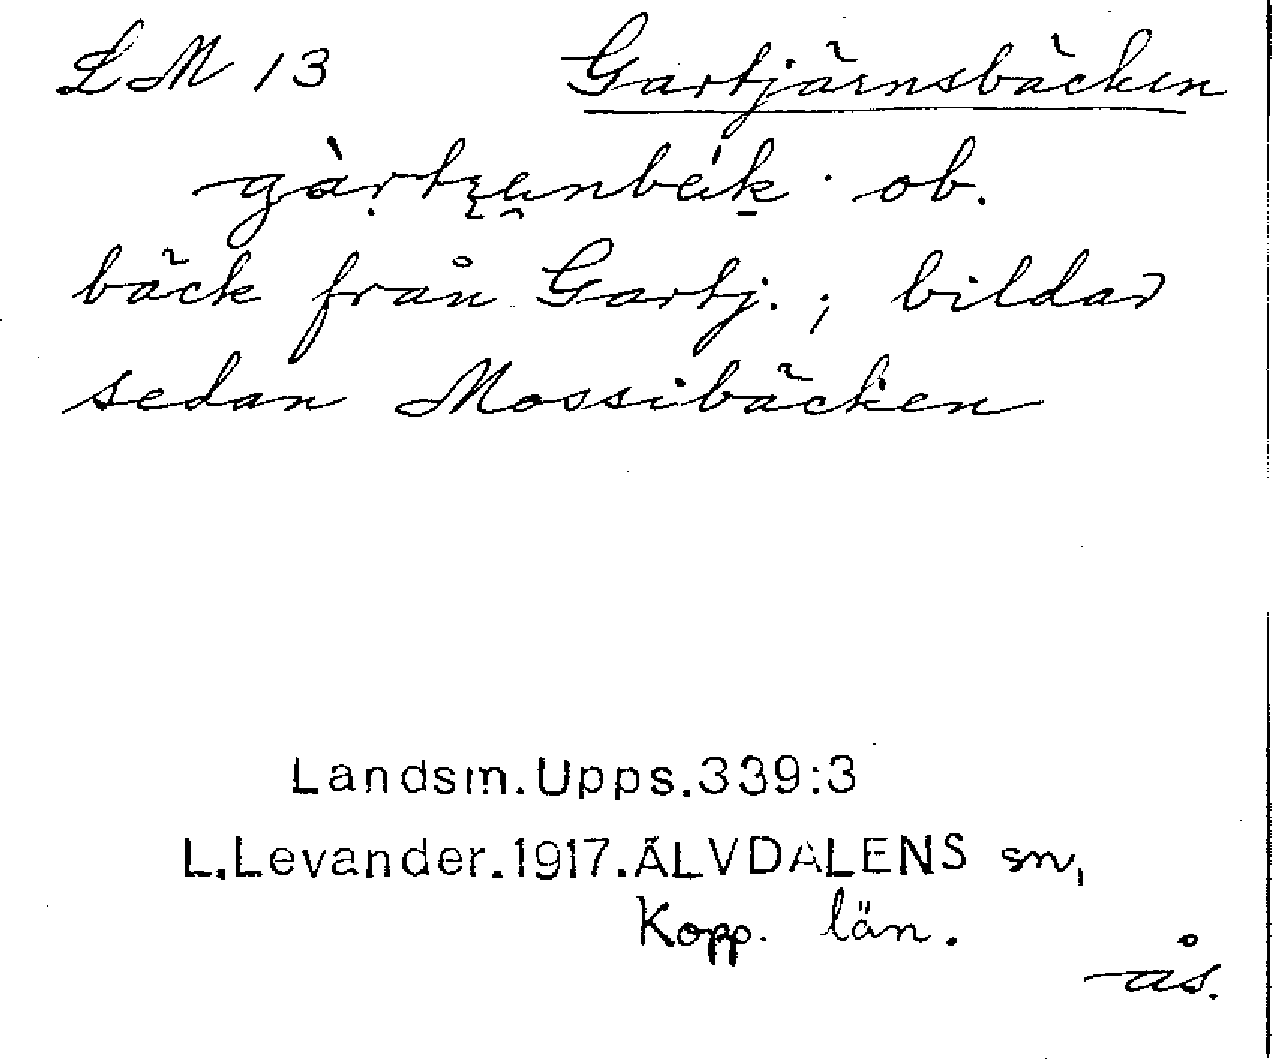 LM 13 Gartjärnsbäcken
ob.
bäck från Gartj.; bildar
sedan Mossibäcken
Landsm.Upps.339:3
L.Levander.1917.ÄLVDALENS sn,
Kopp. län.
ås.